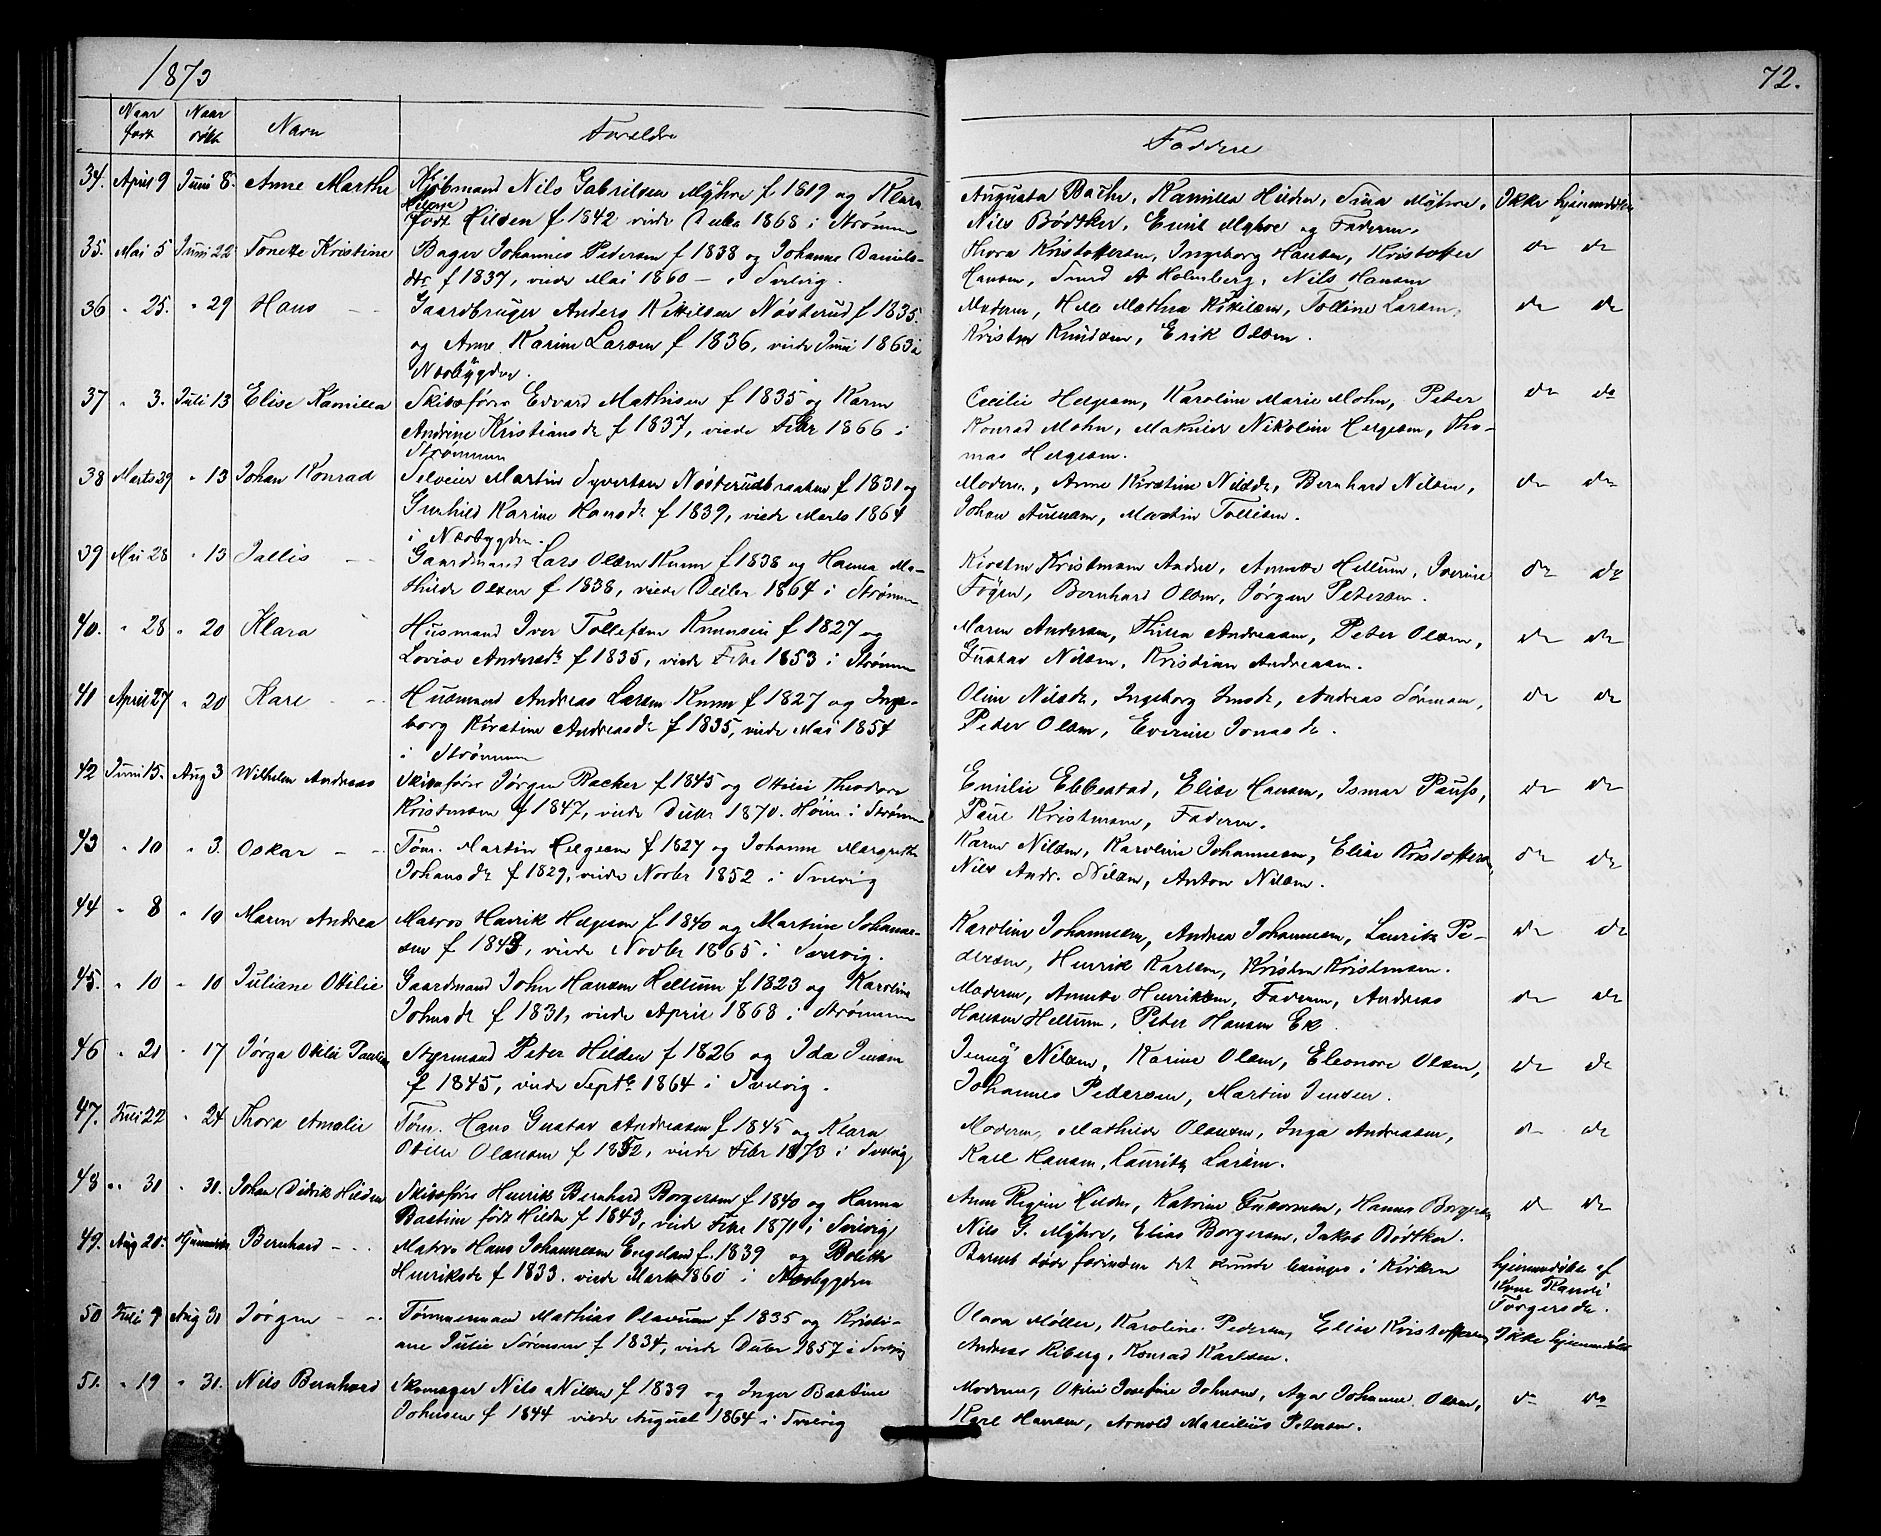 1873
72.
Naar født Naar døbt Navn Forældre Faddere
34. April 9 Juni 8. Anne Marthe Kjøbmand Nils Gabrilsen Myhre f 1819 og Klara
født Hilden f 1842 viede Decbr 1868 i Strømm
Augusta Bache, Kamilla Hilden, Sina Myhre, Ikke hjemmedøbt
Nils Bødtker, Emil Myhre og Faderen.
35. Mai 5 Juni 22 Tonette Kristine Bager Johannes Pedersen f 1838 og Johanne Daniels-
dtr f 1837, viede Mai 1860 - i Svelvig.
Thora Kristoffersen, Ingeborg Hansen, Kristoffer do do
Hansen, Svend A Holmberg, Nils Hansen
36 " 25. " 29 Hans - - Gaardbruger Anders Kittilsen Nøsterud f 1835.
og Anne Karine Larsen f 1836, viede Juni 1863 i
Næsbygden.
Moderen, Helle Mathea Kittilsen, Tolline Larsen, do do
Kristen Knudsen, Erik Olsen.
37 " 3. Juli 13 Elise Kamilla Skibsfører Edvard Mathisen f 1835 og Karen
Andrine Kristiansdr f 1837, viede Febr 1866 i
Strømmen
Cecilie Helgesen, Karoline Marie Mohn, Peter do do
Konrad Mohn, Mathilde Nikoline Helgesen, Tho-
mas Helgesen.
38 Marts 29 " 13 Johan Konrad Selveier Martin Syvertsen Nøsterudbraaten f 1831 og
Gunhild Karine Hansdr f 1839, viede Marts 1864
i Næsbygden.
Moderen, Anne Kirstine Nilsdr, Bernhard Nilsen, do do
Johan Amensen, Martin Tollisen.
39 Mai 28 " 13 Tallis - - Gaardmand Lars Olsen Knem f 1838 og Hanna Ma-
thilde Olsen f 1838, viede Decbr 1864 i Strømm
Kirsten Kristensen Andre, Annette Hellum, Iverine do do
Føgen, Bernhard Olsen, Jørgen Petersen.
40. " 28 " 20 Klara Husmand Iver Tollefsen Knemseie f 1827 og
Lovise Andersdr f 1835, viede Febr 1853 i Strømm
Maren Andersen, Thilla Andreasen, Peter Olsen, do do
Gustav Nilsen, Kristian Andreasen.
41 April 27 " 20 Karl - - Husmand Andreas Larsen Knem f 1827 og Inge-
borg Kirstine Andreasdr f 1835, viede Mai 1854
i Strømmen
Oline Nilsdr, Ingeborg Jensdr, Andreas Sørensen, do do
Peder Olsen, Everine Jonasdr.
42 Juni 15. Aug 3 Wilhelm Andreas Skibsfører Jørgen Backer f 1845 og Ottilie Theodora
Kristensen f 1847, viede Decbr 1870. Hjem i Strømm
Emilie Ebbestad, Elise Hansen, Ismar Pauss, do do
Paul Kristensen, Faderen.
43 " 10 " 3. Oskar - - Tøm. Martin Helgesen f 1827 og Johanne Margrethe
Johansdr f 1829, viede Novbr 1852 i Svelvig
Karen Nilsen, Karoline Johannesen, Elise Kristoffersen, do do
Nils Andr. Nilsen, Anton Nilsen.
44 " 8 " 10 Maren Andrea Matros Henrik Helgesen f 1840 og Martine Johannes-
sen f 1843, viede Novbr 1865 i Svelvig.
Karoline Johannesen, Andrea Johannesen, Laurits Pe- do do
dersen, Henrik Karlsen, Kristen Kristensen.
45. " 10 " 10 Juliane Ottilie Gaardmand John Hansen Hellum f 1823 og Karoline
Johnsdr f 1831, viede April 1868 i Strømmen
Moderen, Annette Henriksen, Faderen, Andreas do do
Hansen Hellum, Peter Hansen Ek
46 " 21 " 17 Jørga Otilie Pauline Styrmand Peter Hilden f 1826 og Ida Jensen
f 1845, viede Septbr 1864 i Svelvig.
Jenny Nilsen, Karine Olsen, Eleonore Olsen, do do
Johannes Pedersen, Martin Jensen.
47. Juli 22 " 24 Thora Amalie Tøm. Hans Gustav Andreasen f 1845 og Klara
Otilie Olausen f 1852, viede Febr 1873 i Svelvig
Moderen, Mathilde Olausen, Inga Andreasen, do do
Karl Hansen, Laurits Larsen.
48 " 31 " 31. Johan Didrik Hilden Skibsfører Henrik Bernhard Borgersen f 1840 og Hanna
Bastine født Hilden f 1843, viede Febr 1871 i Svelvig
Anne Regine Hilden, Katrine Gukorman, Hanna Borgersen do do
Nils G. Myhre, Elias Borgersen, Jakob Bødtker.
49. Aug 20. Hjemmedøbt Bernhard - - Matros Hans Johannesen Engeland f. 1839 og Bolette
Henriksdr f 1833. viede Marts 1860 i Næsbygden
Barnet døde forinden det kunde bringes i Kirken hjemmedøbt af
Kone Randi
Torgersdr.
50 Juli 9 Aug 31 Jørgen - - Tømmermand Mathias Olausen f 1835 og Kristi-
ane Julie Sørensen f 1834, viede Decbr 1857 i Svelvig
Olava Møller, Karoline Pedersen, Elise Kristoffersen, Ikke hjemmedøbt
Andreas Riberg, Konrad Karlsen.
51. " 19 " 31. Nils Bernhard Skomager Nils Nilsen f 1839 og Inger Bastine
Johnsen f 1844 viede August 1864 i Svelvig
Moderen, Otilie Josefine Johnsen, Aga Johanne Olsen, do do
Karl Hansen, Arnold Marcilius Petersen.